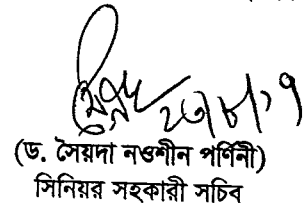 (ড. সৈয়দা নওশীন পর্ণিনী)
সিনিয়র সহকারী সচিব